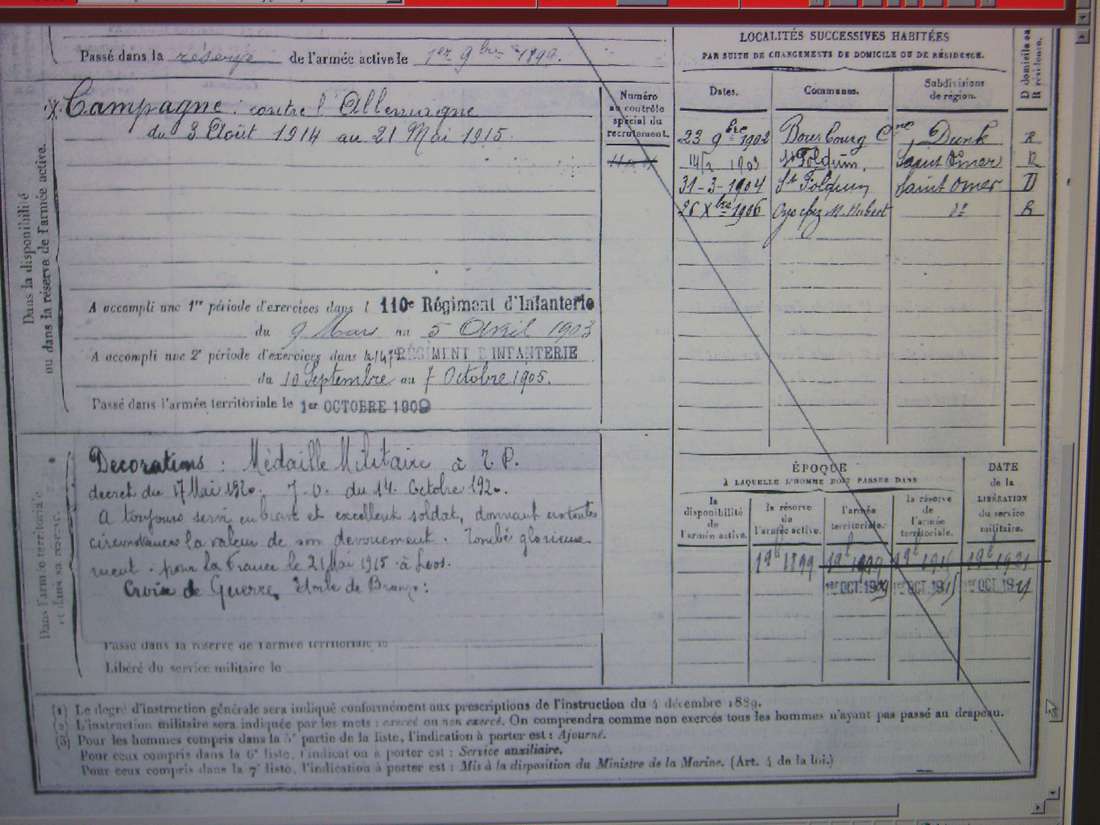 Passé dans la réserve de l'armée active le 1er 9bre 1899.
Campagne : contre l'Allemagne
du 3 Août 1914 au 21 Mai 1915.
Dans la disponibilité
ou dans la réserve de l'armée active.
A accompli une 1re période d'exercices dans l 110e Régiment d'Infanterie
du 9 Mars au 5 Avril 1903
A accompli une 2e période d'exercices dans le RÉGIMENT D'INFANTERIE
du 10 Septembre au 7 Octobre 1905.
Passé dans l'armée territoriale le 1er OCTOBRE 1909
Numéro
au contrôle
spécial du
recrutement.
LOCALITÉS SUCCESSIVES HABITÉES
PAR SUITE DE CHANGEMENTS DE DOMICILE OU DE RÉSIDENCE.
D domicile ou
R résidence.
Dates. Communes. Subdivisions
de région.
23 9bre 1902 Bourbourg Cne Dunk R
1903 St Folquin. Saint Omer R
31-3-1904 St Folquin Saint Omer D
26 Xbre 1906 Oye chez M. Hubert do R
Dans l'armée territoriale
et dans sa réserve.
Décorations : Médaille Militaire à T.P.
décret du 17 Mai 1920. J.O. du 14 Octobre 1920.
A toujours servi en brave et excellent soldat, donnant en toutes
circonstances la valeur de son dévouement. Tombé glorieuse
ment pour la France le 21 Mai 1915 à Loos.
Croix de Guerre, Etoile de Bronze.
Passé dans la réserve de l'armée territoriale le
Libéré du service militaire le
ÉPOQUE
À LAQUELLE L'HOMME DOIT PASSER DANS
DATE
de la
LIBÉRATION
du service
militaire.
la
disponibilité
de
l'armée active.
la réserve
de
l'armée active.
l'armée
territoriale.
la réserve
de
l'armée
territoriale.
1899
1er OCT. 1909 1er OCT. 1915 1er OCT. 1921
(1) Le degré d'instruction générale sera indiqué conformément aux prescriptions de l'instruction du 4 décembre 1889.
(2) L'instruction militaire sera indiquée par les mots : exercé ou non exercé. On comprendra comme non exercés tous les hommes n'ayant pas passé au drapeau.
(3) Pour les hommes compris dans la 5e partie de la liste, l'indication à porter est : Ajourné.
Pour ceux compris dans la 6e liste, l'indication à porter est : Service auxiliaire.
Pour ceux compris dans la 7e liste, l'indication à porter est : Mis à la disposition du Ministre de la Marine. (Art. 4 de la loi.)